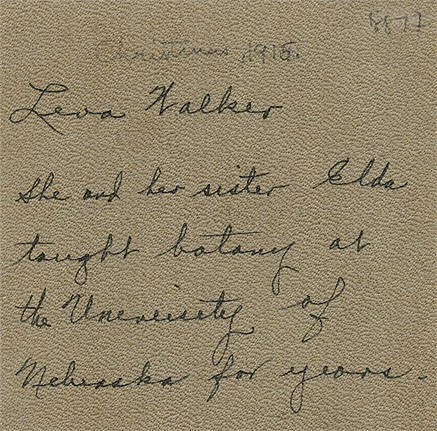 8877
Christmas, 1915.
Leva Walker
She and her sister Elda
taught botany at
the University of
Nebraska for years.